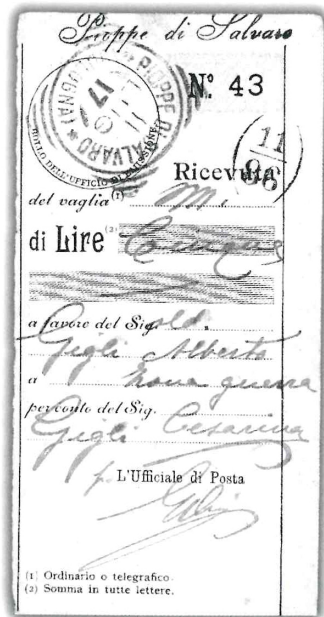 Pioppe di Salvaro
Nº 43
PIOPPE DI SALVARO * (BOLOGNA)
17
BOLLO DELL'UFFICIO DI EMISSIONE
11
96
Ricevuta
del vaglia (1) m.
di Lire (2) Cinque
a favore del Sig. sold.
Gigli Alberto
a Zona guerra
per conto del Sig.
Gigli Cesarina
p. L'Ufficiale di Posta
(1) Ordinario o telegrafico.
(2) Somma in tutte lettere.